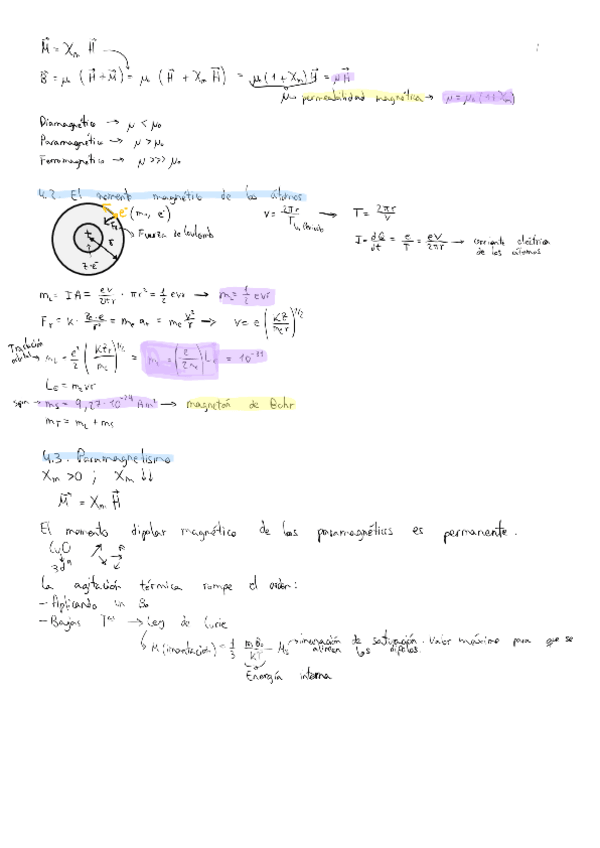 M⃗ = χm H⃗
B⃗ = μ (H⃗ + M⃗) = μ (H⃗ + χm H⃗) = μ(1+χm)H⃗ = μH⃗
μ permeabilidad magnética → μ = μ₀(1+χm)
Diamagnético → μ < μ₀
Paramagnético → μ > μ₀
Ferromagnético → μ >>> μ₀
4.2. El momento magnético de los átomos
e⁻ (me, e⁻)
Fuerza de Coulomb
r
z·e⁻
v = 2πr/T → T = 2πr/v
I = dQ/dt = e/T = eV/2πr → corriente eléctrica de los átomos
mL = IA = ev/2πr · πr² = 1/2 evr → mL = 1/2 evr
Fr = k · ze·e/r² = me ar = me v²/r → v = e (KZ/me r)^1/2
Traslación orbital → mL = e²/2 (KZr/me)^1/2 = mL = (e/2me) Le = 10⁻²³
Le = me vr
spin → ms = 9,27·10⁻²⁴ Am² → magnetón de Bohr
mT = mL + ms
4.3. Paramagnetismo
χm > 0 ; χm ↓↓
M⃗ = χm H⃗
El momento dipolar magnético de los paramagnéticos es permanente.
CuO
3d⁹
La agitación térmica rompe el orden:
- Aplicando un B₀
- Bajas Tas → Ley de Curie
M (imantación) = 1/3 mB₀/KT Ms → imanación de saturación. Valor máximo para que se alineen los dipolos.
Energía interna